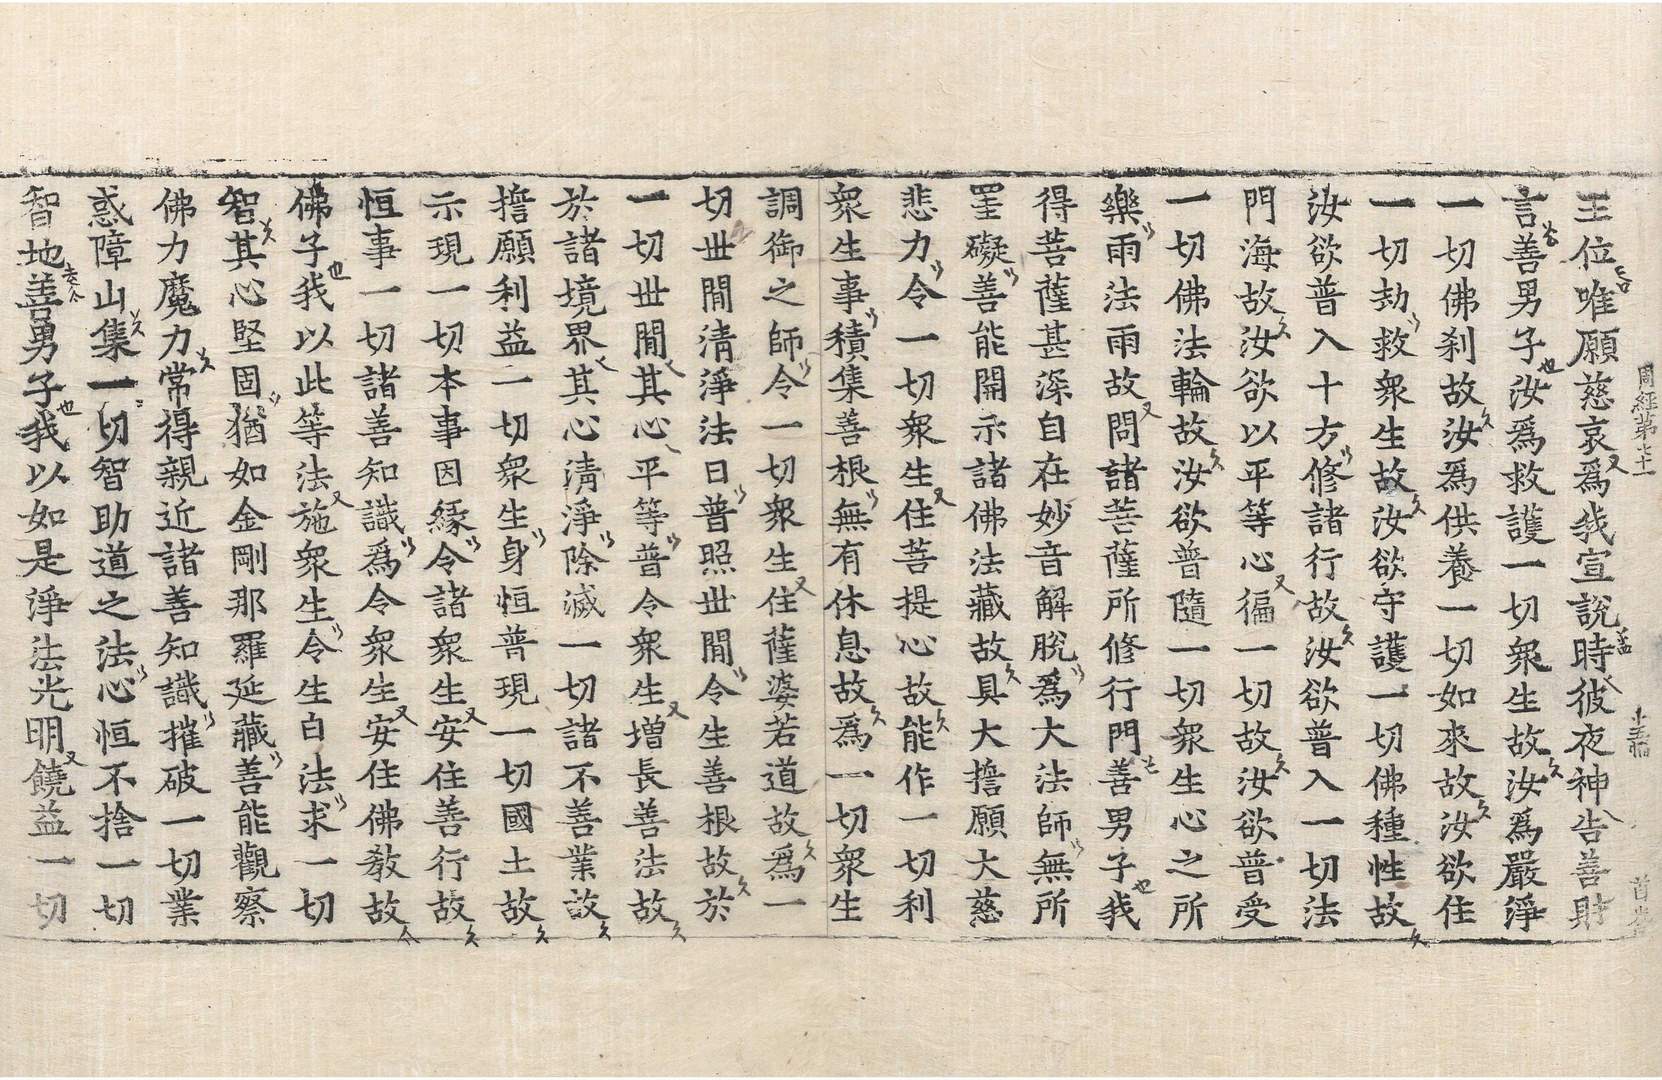 周經第七十一
王位唯願慈哀爲我宣說時彼夜神告善財
言善男子汝爲救護一切衆生故汝爲嚴淨
一切佛刹故汝爲供養一切如來故汝欲住
一切劫救衆生故汝欲守護一切佛種性故
汝欲普入十方修諸行故汝欲普入一切法
門海故汝欲以平等心徧一切故汝欲普受
一切佛法輪故汝欲普隨一切衆生心之所
樂雨法雨故問諸菩薩所修行門善男子我
得菩薩甚深自在妙音解脫爲大法師無所
罣礙善能開示諸佛法藏故具大誓願大慈
悲力令一切衆生住菩提心故能作一切利
衆生事積集善根無有休息故爲一切衆生
調御之師令一切衆生住薩婆若道故爲一
切世間清淨法日普照世間令生善根故於
一切世間其心平等普令衆生增長善法故
於諸境界其心清淨除滅一切諸不善業故
誓願利益一切衆生身恒普現一切國土故
示現一切本事因緣令諸衆生安住善行故
恒事一切諸善知識爲令衆生安住佛教故
佛子我以此等法施衆生令生白法求一切
智其心堅固猶如金剛那羅延藏善能觀察
佛力魔力常得親近諸善知識摧破一切業
惑障山集一切智助道之法心恒不捨一切
智地善男子我以如是淨法光明饒益一切